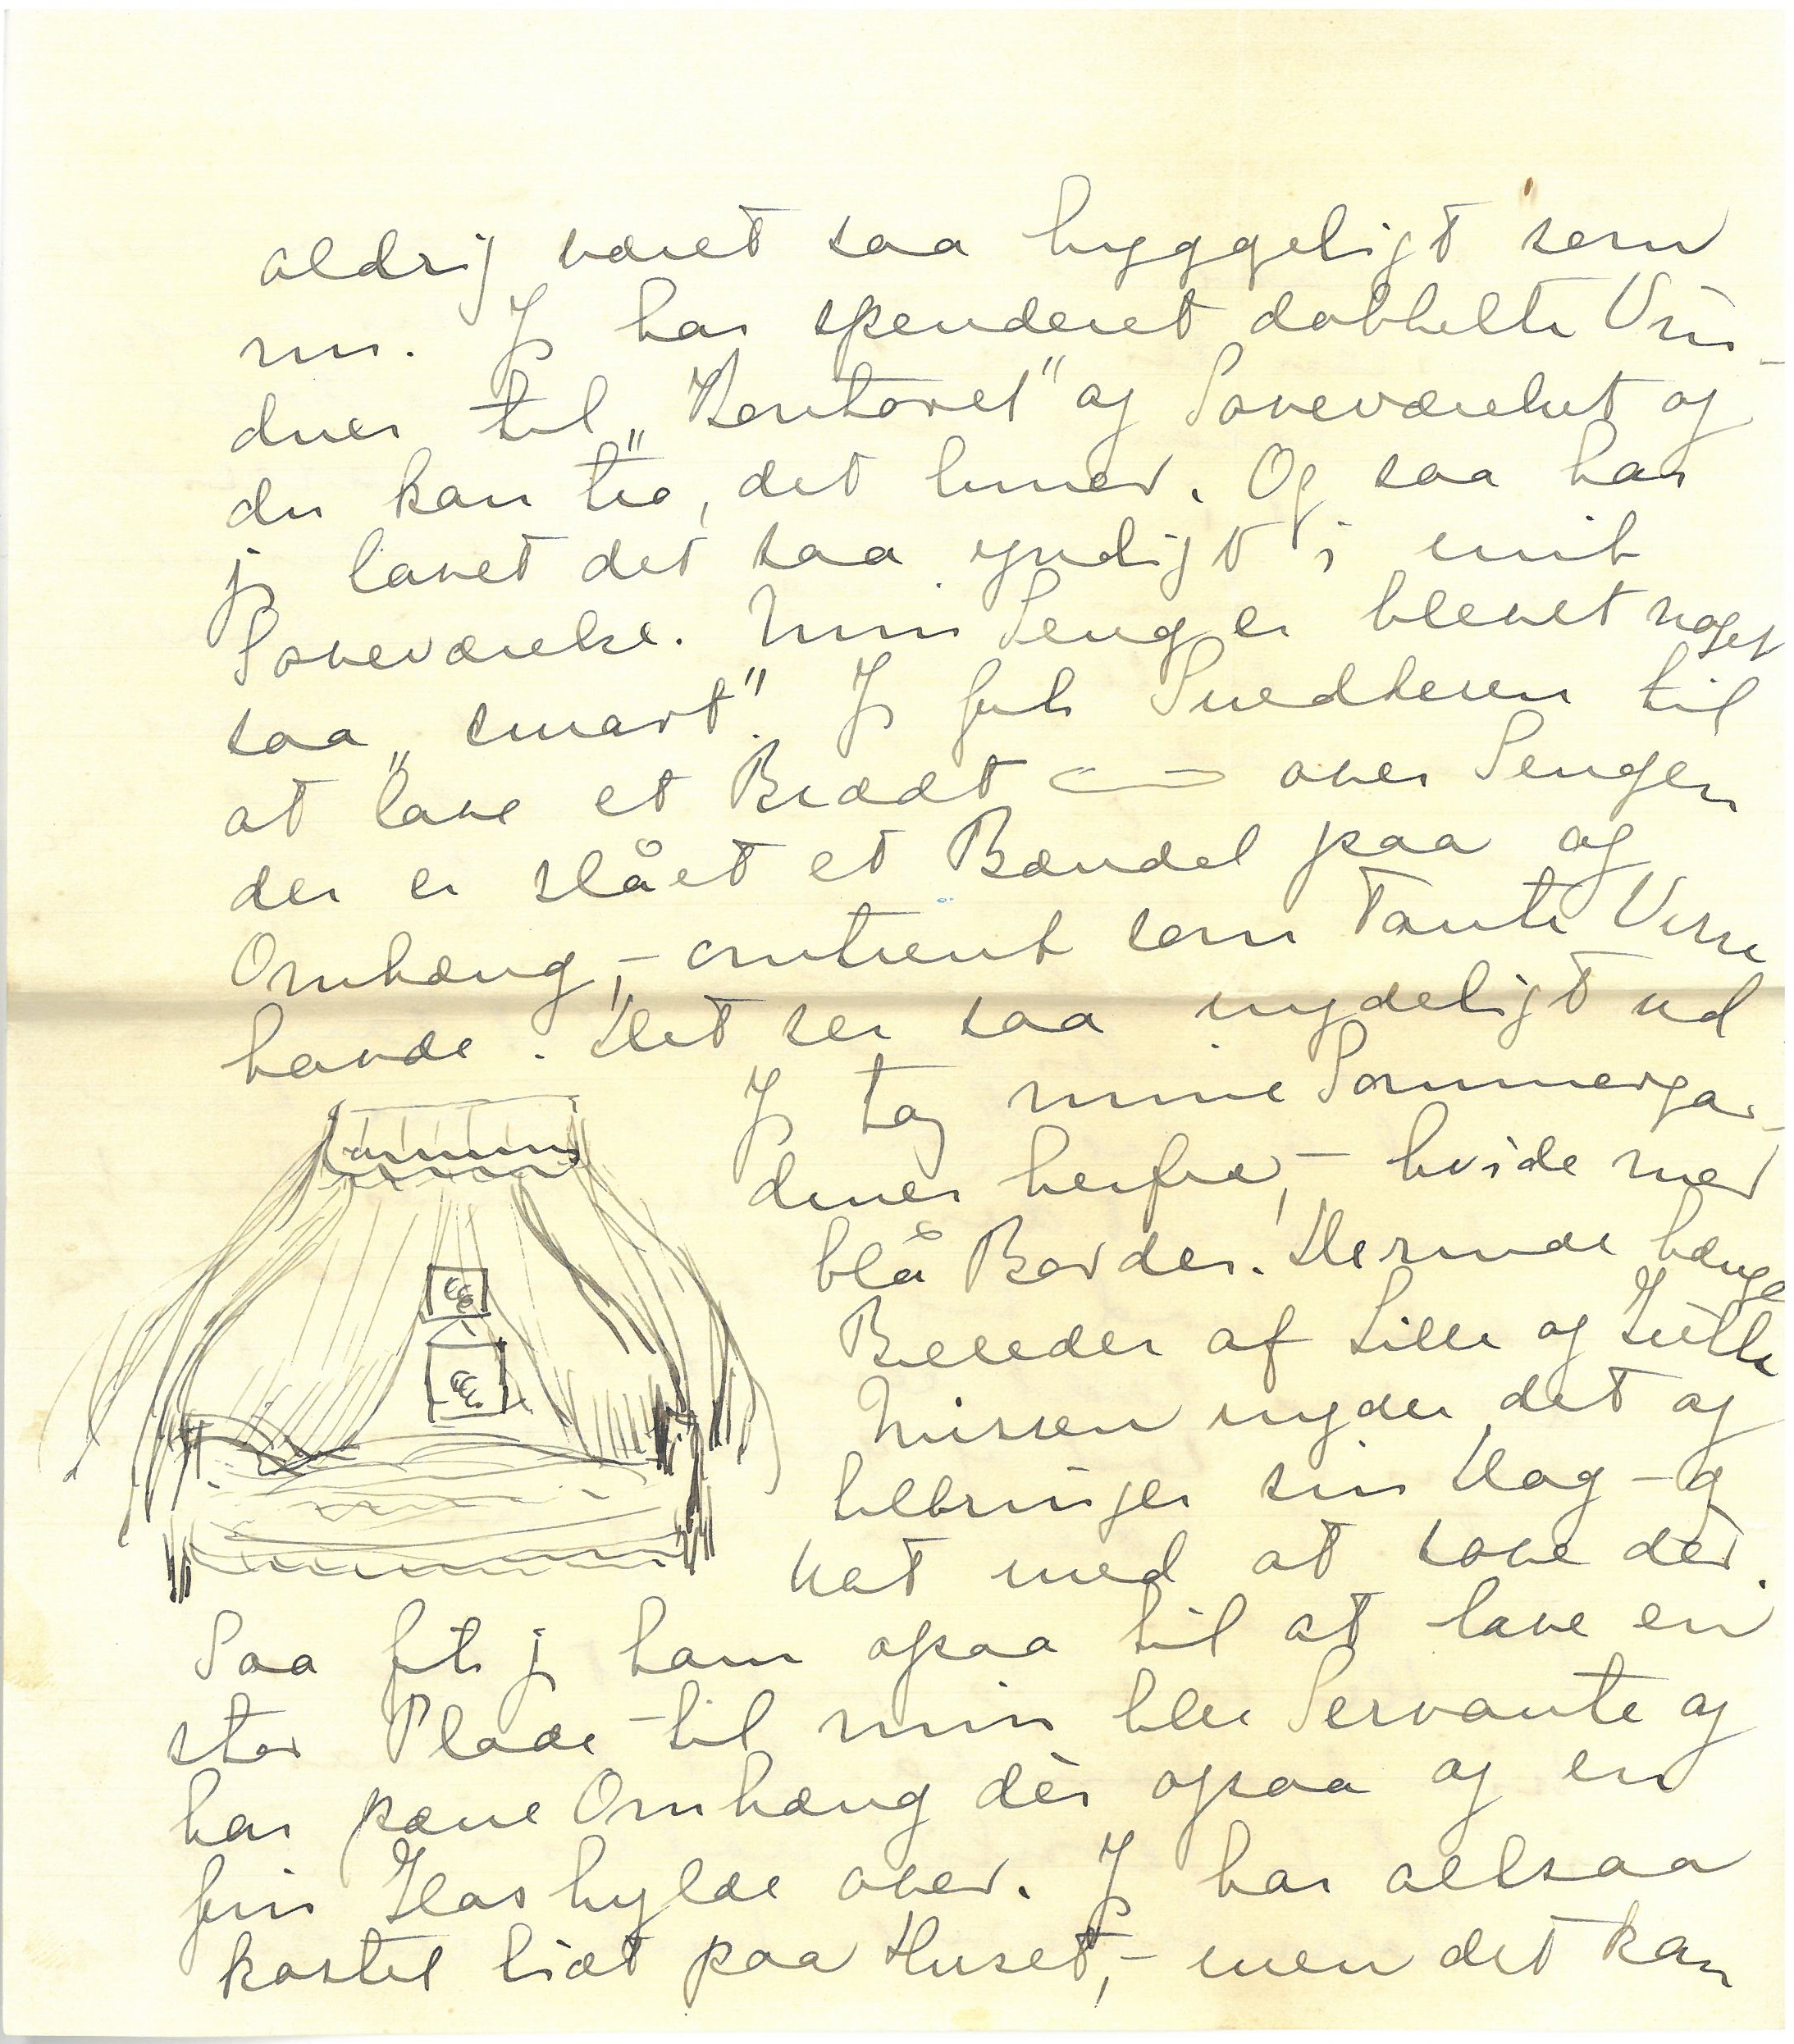 aldrig været saa hyggeligt som
nu. Jeg har spenderet dobbelte Vin-
duer til „Kontoret" og Soveværelset og
du kan tro, det luner. Og saa har
jeg lavet det saa yndigt i mit
Soveværelse. Min Seng er blevet noget
saa „smart". Jeg fik Snedkeren til
at lave et Brædt over Sengen
der er slået et Bændel paa og
Omhæng, – omtrent som Tante Visse
havde. Det ser saa nydeligt ud
Jeg tog mine Sommerga-
diner herfra, – hvide med
blå Border. Derinde hænger
Billeder af Lille og
Missen nyder det og
tilbringer sin Dag – og
Nat med at sove dér.
Saa fik jeg ham ogsaa til at lave en
stor Plade til min lille Servante og
har pæne Omhæng dèr ogsaa og en
fin Glashylde over. Jeg har altsaa
kostet lidt paa Huset, – men det kan